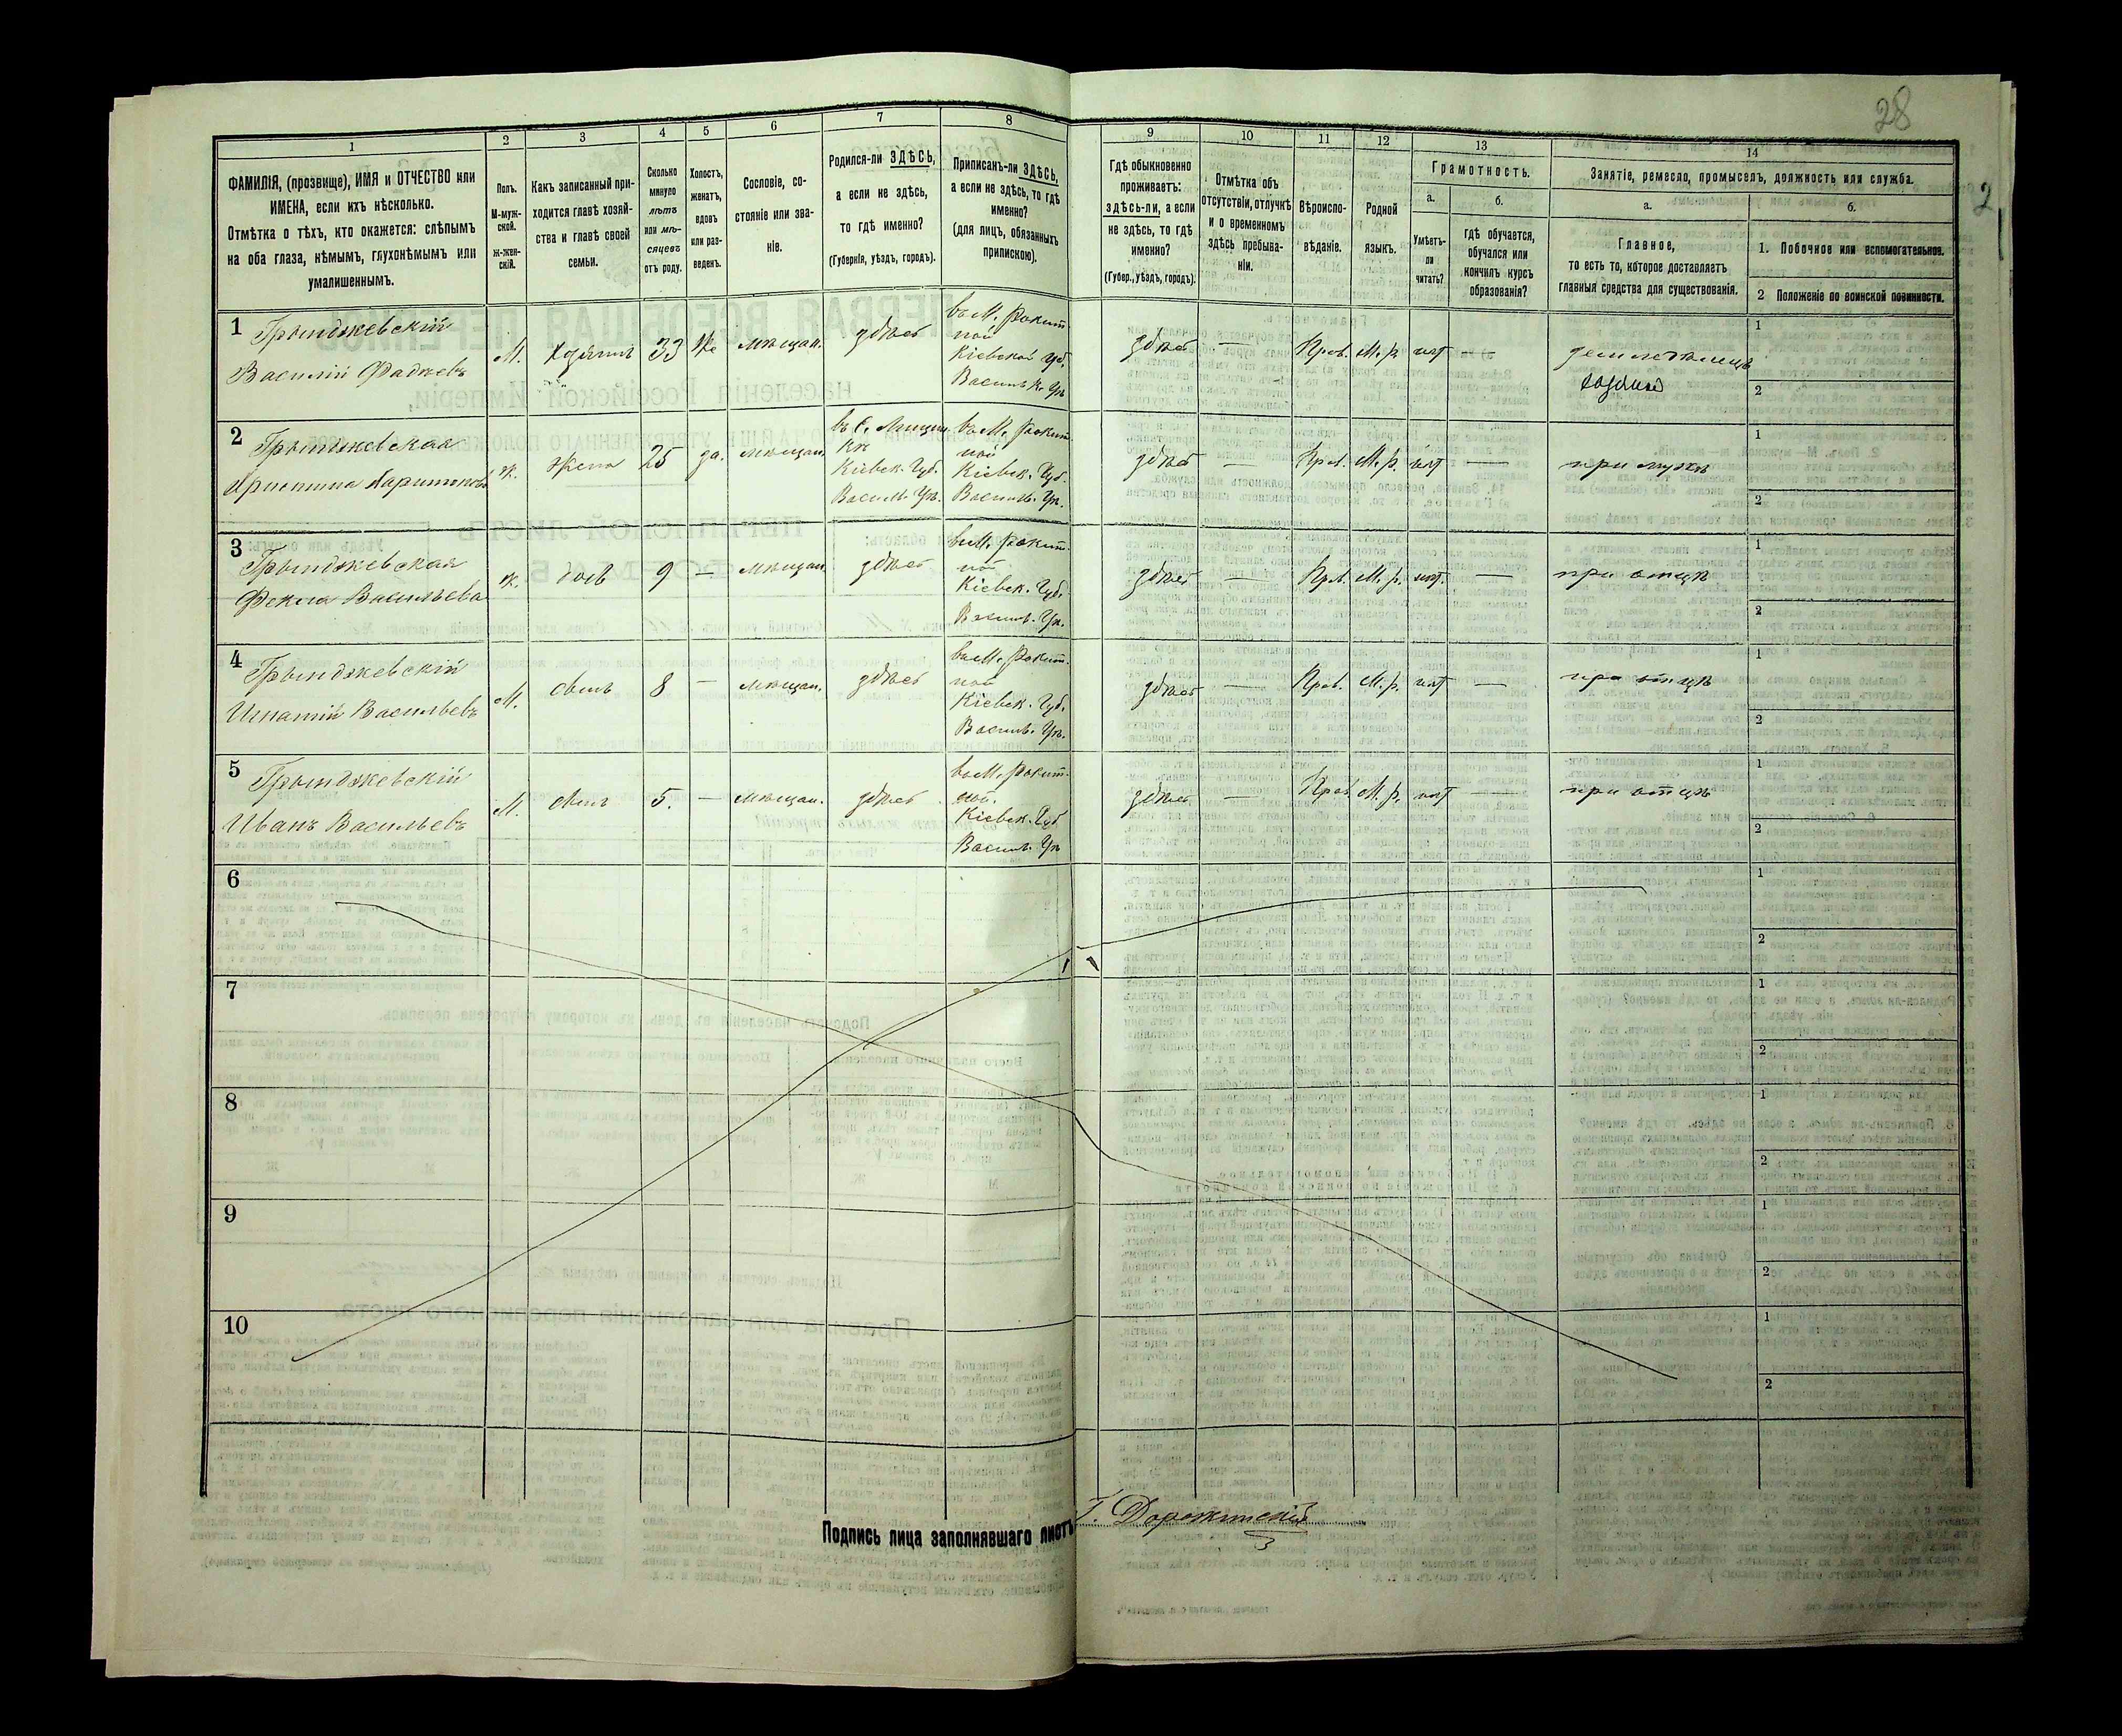 28
2
1
2
3
4
5
6
7
8
9
10
11
12
13
14
ФАМИЛІЯ, (прозвище), ИМЯ и ОТЧЕСТВО или
ИМЕНА, если ихъ нѣсколько.
Отмѣтка о тѣхъ, кто окажется: слѣпымъ
на оба глаза, нѣмымъ, глухонѣмымъ или
умалишеннымъ.
Полъ.
М-муж-
ской.
ж-жен-
скій.
Какъ записанный при-
ходится главѣ хозяй-
ства и главѣ своей
семьи.
Сколько
минуло
лѣтъ
или мѣ-
сяцевъ
отъ роду.
Холостъ,
женатъ,
вдовъ
или раз-
веденъ.
Сословіе, со-
стояніе или зва-
ніе.
Родился-ли ЗДѢСЬ,
а если не здѣсь,
то гдѣ именно?
(Губернія, уѣздъ, городъ).
Приписанъ-ли ЗДѢСЬ,
а если не здѣсь, то гдѣ
именно?
(для лицъ, обязанныхъ
припискою).
Гдѣ обыкновенно
проживаетъ:
здѣсь-ли, а если
не здѣсь, то гдѣ
именно?
(Губер., уѣздъ, городъ).
Отмѣтка объ
отсутствіи, отлучкѣ
и о временномъ
здѣсь пребыва-
ніи.
Вѣроиспо-
вѣданіе.
Родной
языкъ.
Грамотность.
а.
Умѣетъ-
ли
читать?
б.
гдѣ обучается,
обучался или
кончилъ курсъ
образованія?
Занятіе, ремесло, промыселъ, должность или служба.
а.
Главное,
то есть то, которое доставляетъ
главныя средства для существованія.
б.
1. Побочное или вспомогательное.
2 Положеніе по воинской повинности.
1
Грынджевскій
Василій Фадѣевъ
М.
хозяинъ
33
же
мѣщан.
здѣсь
въ М. Рокит-
ной
Кіевской Губ.
Васильк. Уѣ.
здѣсь
—
Прав.
М. р.
нѣт
—
земледѣлецъ
хозяинъ
1
2
2
Грынджевская
Христина Харитонова
ж.
жена
25
за.
мѣщан.
въ С.
Кіевск. Губ.
Василь. Уѣ.
въ М. Рокит-
ной
Кіевск. Губ.
Василь. Уѣ.
здѣсь
—
Прав.
М. р.
нѣт
—
при мужѣ
1
2
3
Грынджевская
Фекла Васильева
ж.
дочь
9
—
мѣщан.
здѣсь
въ М. Рокит-
ной
Кіевск. Губ.
Василь. Уѣ.
здѣсь
—
Прав.
М. р.
нѣт.
—
при отцѣ
1
2
4
Грынджевскій
Игнатій Васильевъ
М.
сынъ
8
—
мѣщан.
здѣсь
въ М. Рокит-
ной
Кіевск. Губ.
Василь. Уѣ.
здѣсь
—
Прав.
М. р.
нѣт
—
при отцѣ
1
2
5
Грынджевскій
Иванъ Васильевъ
М.
сынъ
5.
—
мѣщан.
здѣсь
въ М. Рокит-
ной.
Кіевск. Губ.
Василь. Уѣ
здѣсь
—
Прав.
М. р.
нѣт
—
при отцѣ
1
2
6
1
2
7
1
2
8
1
2
9
1
2
10
1
2
Подпись лица заполнявшаго листъ Г. Дорожинскій